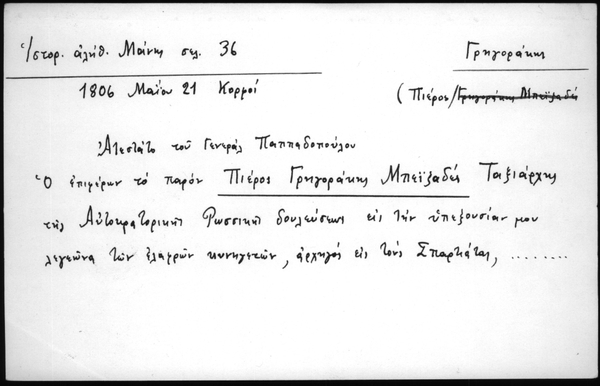 Ἱστορ. ἀλήθ. Μάνης σελ. 36
Γρηγοράκης
1806 Μαΐου 21 Κορφοί
(Πιέρος/Γρηγοράκης Μπεϊζαδὲς
Ἀτεστάτο τοῦ Γενεράλ Παππαδοπούλου
Ὁ ἐπιφέρων τὸ παρόν Πιέρος Γρηγοράκης Μπεϊζαδές Ταξιάρχης
τῆς Αὐτοκρατορικῆς Ρωσσικῆς δουλεύσεως εἰς τὴν ὑπεξουσίαν μου
λεγεῶνα τῶν ἐλαφρῶν κυνηγετῶν, ἀρχηγός εἰς τοὺς Σπαρτιάτας, ........